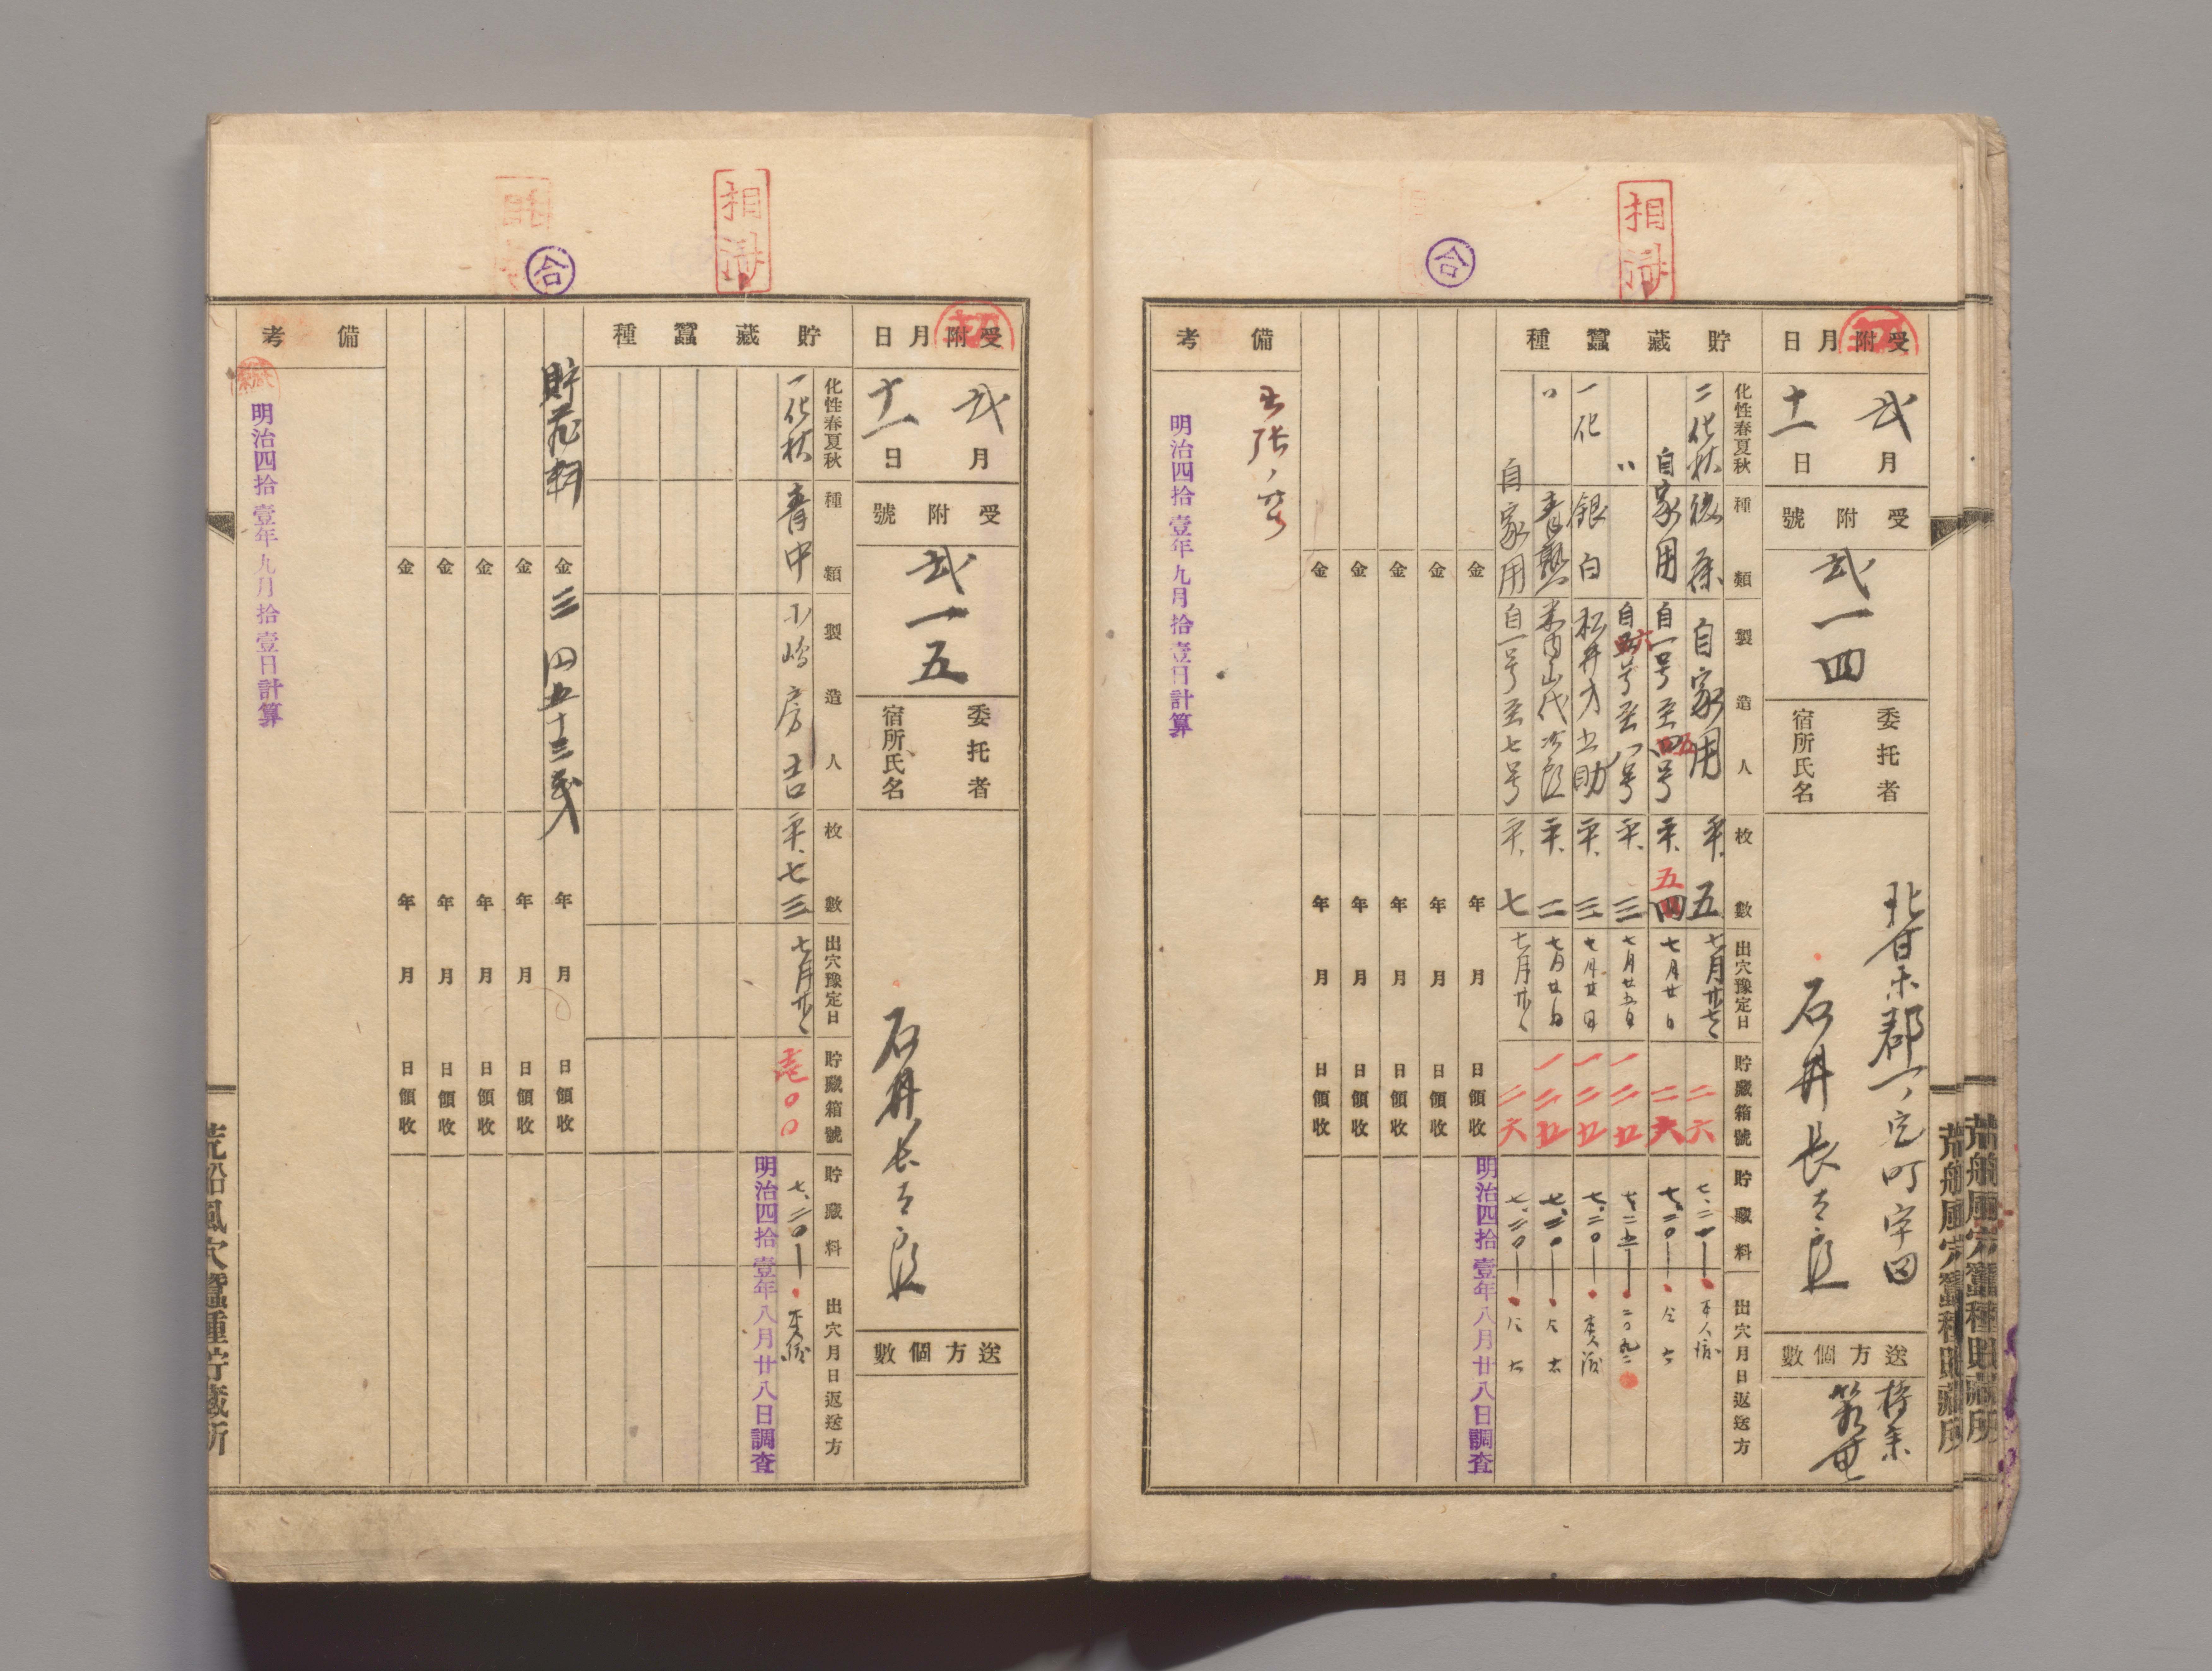 相済
合
受附月日
弍月
十一日
受附號
弍一四
委托者
宿所氏名
北甘楽郡一ノ宮町字田
石井長太郎
送方個數
貯藏蠶種
化性春夏秋
種類
製造人
枚數
出穴豫定日
貯藏箱號
貯藏料
出穴月日返送方
二化秋
自家用
平五
二六
七、二一
自家用
自一号至四号
五
平四
五
七月廿日
二六
七、二〇
〃
号至八号
六
平三
七月廿五日
一二五
七、二五
一化
銀白
松井
助
平三
七月廿日
一二五
七、二〇
〃
青熟
平二
七月廿日
一二五
七、二〇
自家用
自一号至七号
平七
二六
七、二〇
明治四拾壹年八月廿八日調査
金 年 月 日領收
金 年 月 日領收
金 年 月 日領收
金 年 月 日領收
金 年 月 日領收
備考
明治四拾壹年九月拾壹日計算
荒船風穴蠶種貯藏所
荒船風穴蠶種貯藏所
相済
合
受附月日
弍月
十一日
受附號
弍一五
委托者
宿所氏名
石井長太郎
送方個數
貯藏蠶種
化性春夏秋
種類
製造人
枚數
出穴豫定日
貯藏箱號
貯藏料
出穴月日返送方
一化秋
青中
小嶋房吉
平七三
壱〇〇
七、二〇
明治四拾壹年八月廿八日調査
貯蔵料
金三円五十三戋
年 月 日領收
金 年 月 日領收
金 年 月 日領收
金 年 月 日領收
金 年 月 日領收
備考
明治四拾壹年九月拾壹日計算
荒船風穴蠶種貯藏所